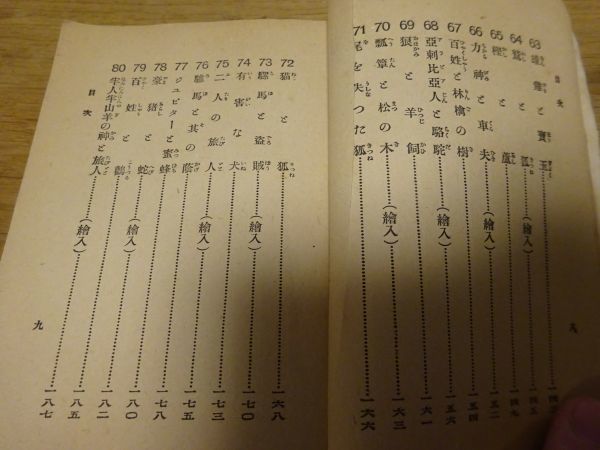 目次
63 と寶玉 一四三
64 鷲と狐 (繪入) 一四五
65 樫と蘆 一四九
66 力神と車夫 (繪入) 一五二
67 百姓と林檎の樹 一五四
68 亞剌比亞人と駱駝 (繪入) 一五六
69 狼と羊飼 一六一
70 瓢簞と松の木 (繪入) 一六三
71 尾を失つた狐 一六六
八
72 猫と狐 一六八
73 騾馬と盜賊 (繪入) 一七〇
74 有害な犬 一七三
75 二人の旅人 (繪入) 一七五
76 驢馬と其の蔭 一七八
77 ジュピターと蜜蜂 一八〇
78 豪猪と蛇 (繪入) 一八二
79 百姓と鸛 一八五
80 半人半山羊の神と旅人 (繪入) 一八七
目次
九